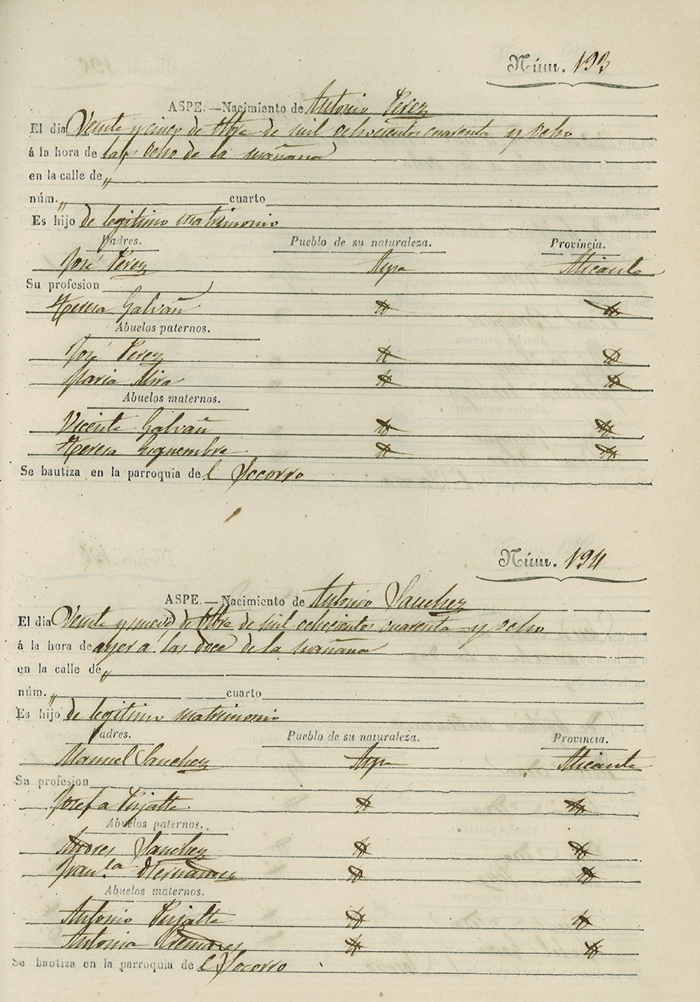 Núm. 193
ASPE.—Nacimiento de Antonio Perez
El dia Veinte y cinco de de mil ochocientos cuarenta y ocho
á la hora de las ocho de la mañana
en la calle de „
núm. „ cuarto
Es hijo de legitimo matrimonio
Padres. Pueblo de su naturaleza. Provincia.
José Perez Aspe Alicante
Su profesion
Teresa Galvañ
Abuelos paternos.
José Perez
Maria Mira
Abuelos maternos.
Vicente Galvañ
Teresa
Se bautiza en la parroquia del Socorro
Núm. 194
ASPE.—Nacimiento de Antonio Sanchez
El dia Veinte y nueve de de mil ochocientos cuarenta y ocho
á la hora de ayer á las doce de la mañana
en la calle de „
núm. „ cuarto
Es hijo de legitimo matrimonio
Padres. Pueblo de su naturaleza. Provincia.
Manuel Sanchez Aspe Alicante
Su profesion
Josefa Pujalte
Abuelos paternos.
Sanchez
Fran.ca Hernandez
Abuelos maternos.
Antonio Pujalte
Antonia
Se bautiza en la parroquia de l Socorro